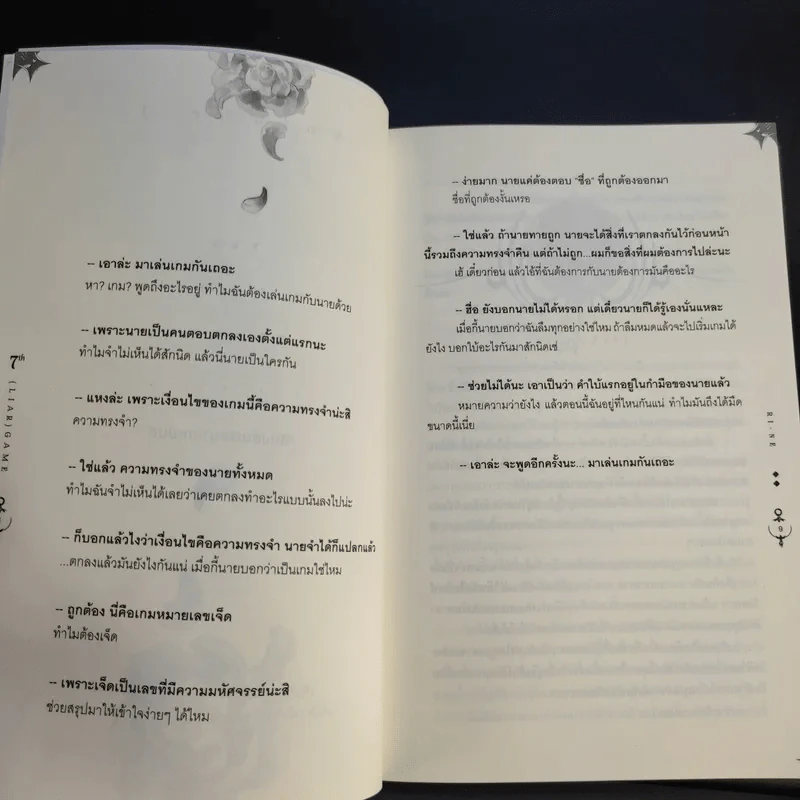 -- เอาล่ะ มาเล่นเกมกันเถอะ
หา? เกม? พูดถึงอะไรอยู่ ทำไมฉันต้องเล่นเกมกับนายด้วย
-- เพราะนายเป็นคนตอบตกลงเองตั้งแต่แรกนะ
ทำไมจำไม่เห็นได้สักนิด แล้วนี่นายเป็นใครกัน
-- แหงล่ะ เพราะเงื่อนไขของเกมนี้คือความทรงจำน่ะสิ
ความทรงจำ?
-- ใช่แล้ว ความทรงจำของนายทั้งหมด
ทำไมฉันจำไม่เห็นได้เลยว่าเคยตกลงทำอะไรแบบนั้นลงไปน่ะ
-- ก็บอกแล้วไงว่าเงื่อนไขคือความทรงจำ นายจำได้ก็แปลกแล้ว
...ตกลงแล้วมันยังไงกันแน่ เมื่อกี้นายบอกว่าเป็นเกมใช่ไหม
-- ถูกต้อง นี่คือเกมหมายเลขเจ็ด
ทำไมต้องเจ็ด
-- เพราะเจ็ดเป็นเลขที่มีความมหัศจรรย์น่ะสิ
ช่วยสรุปมาให้เข้าใจง่ายๆ ได้ไหม
7th
(LIAR) GAME
-- ง่ายมาก นายแค่ต้องตอบ "ชื่อ" ที่ถูกต้องออกมา
ชื่อที่ถูกต้องงั้นเหรอ
-- ใช่แล้ว ถ้านายทายถูก นายจะได้สิ่งที่เราตกลงกันไว้ก่อนหน้า
นี้รวมถึงความทรงจำคืน แต่ถ้าไม่ถูก...ผมก็ขอสิ่งที่ผมต้องการไปล่ะนะ
เฮ้ เดี๋ยวก่อน แล้วไอ้ที่ฉันต้องการกับนายต้องการมันคืออะไร
-- ฮื่อ ยังบอกนายไม่ได้หรอก แต่เดี๋ยวนายก็ได้รู้เองนั่นแหละ
เมื่อกี้นายบอกว่าฉันลืมทุกอย่างใช่ไหม ถ้าลืมหมดแล้วจะไปเริ่มเกมได้
ยังไง บอกใบ้อะไรกันมาสักนิดเซ่
-- ช่วยไม่ได้นะ เอาเป็นว่า คำใบ้แรกอยู่ในกำมือของนายแล้ว
หมายความว่ายังไง แล้วตอนนี้ฉันอยู่ที่ไหนกันแน่ ทำไมมันถึงได้มืด
ขนาดนี้เนี่ย
-- เอาล่ะ จะพูดอีกครั้งนะ... มาเล่นเกมกันเถอะ
RI-NE
9